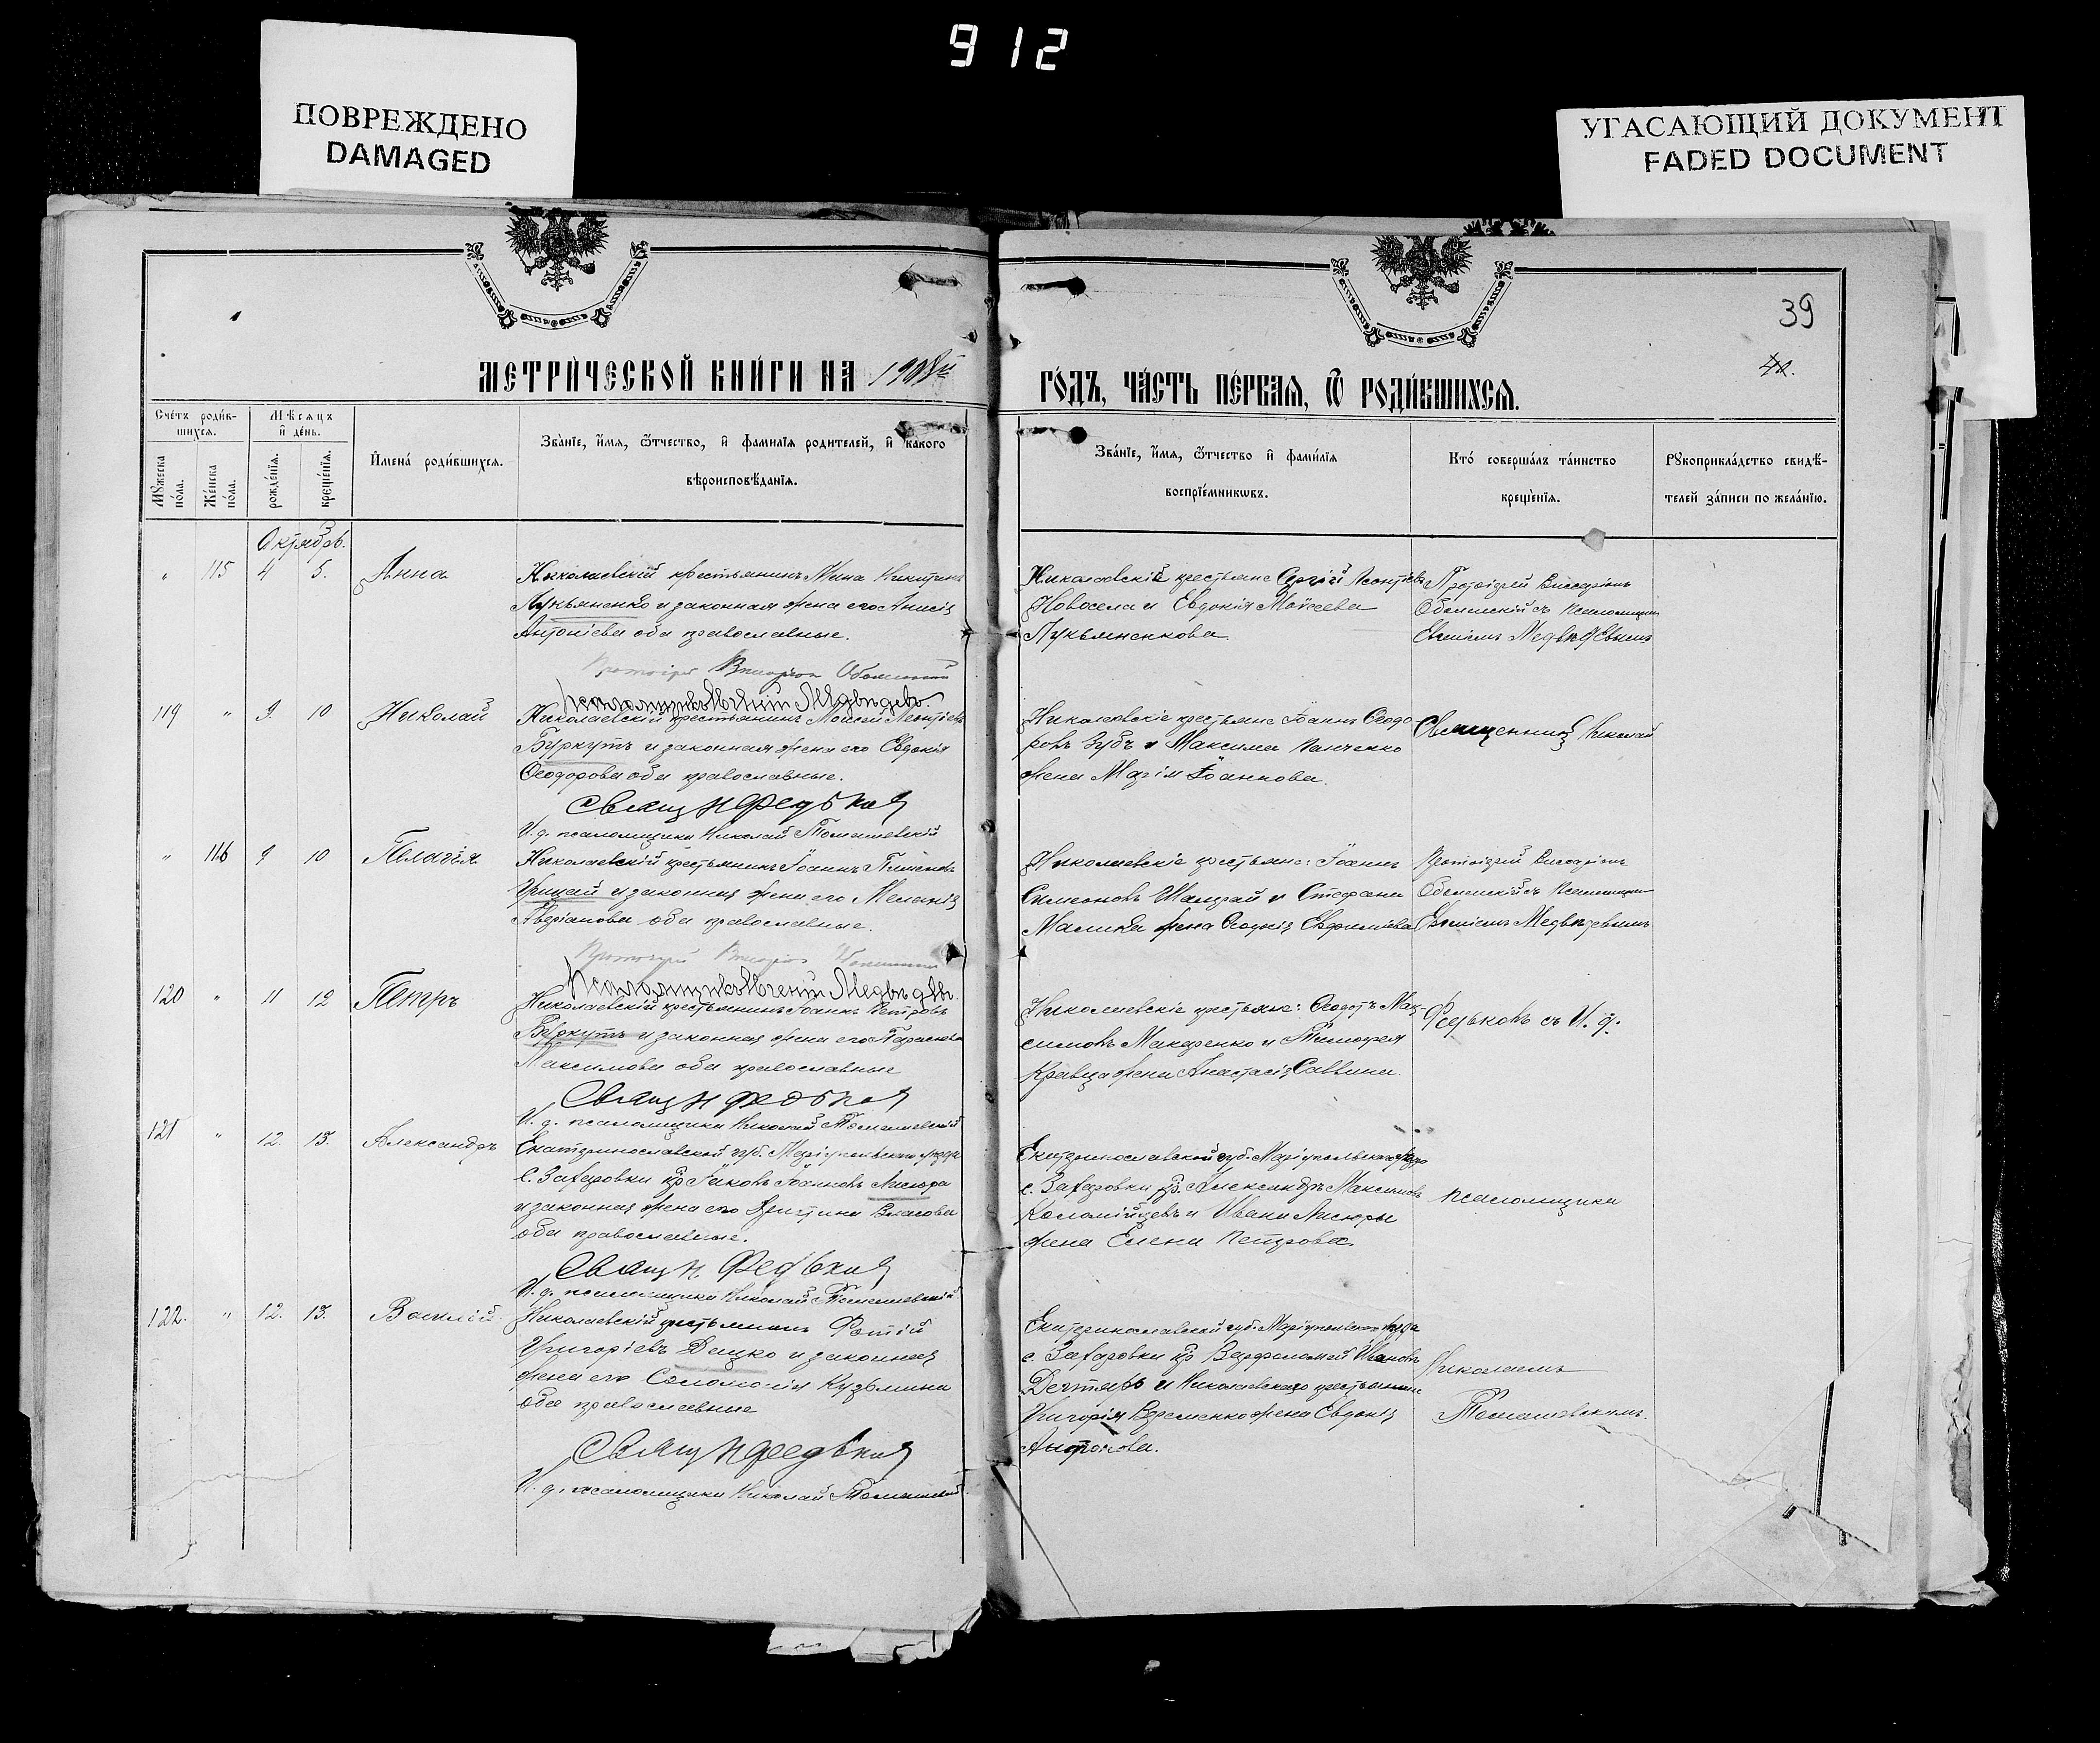 912
ПОВРЕЖДЕНО
DAMAGED
УГАСАЮЩИЙ ДОКУМЕНТ
FADED DOCUMENT
МЕТРИЧЕСКОЙ КНИГИ НА
ГОДЪ, ЧАСТЬ ПЕРВАЯ, Ѿ РОДИВШИХСЯ.
39
Счетъ родив-
шихся.
Мѣсяцъ
и день.
Мꙋжеска
пола.
Женска
пола.
рожденїя.
крещенїя.
Имена родившихся.
Званїе, имя, ѿтчество, и фамилїя родителей, и какого
вѣроисповѣданїя.
Званїе, имя, ѿтчество и фамилїя
воспрїемникѡвъ.
Кто совершалъ таинство
крещенїя.
Рꙋкоприкладство свидѣ-
телей записи по желанїю.
Октябрь.
" 115 4 5. Анна
Николаевскій крестьянинъ Мина Никитинъ
Лукьяненко и законная жена его Анисія
Антоніева оба православные.
Николаевскіе крестьяне Сергій Леонтіевъ
Новосела и Евдокія Моисеева
Лукьяненкова
Протоіерей Виссаріонъ
Оболенскій съ псаломщикомъ
Евгеніемъ Медвѣдевымъ
Протоіерей Виссаріон Оболенский
Псаломщикъ Евгеній Медвѣдевъ.
119 " 9. 10 Николай
Николаевскій крестьянинъ Моисей Леонтіевъ
Буркутъ и законная жена его Евдокія
Ѳеодорова оба православные.
Николаевскіе крестьяне Іоаннъ Ѳеодо
ровъ Зубъ и Максима Панченко
жена Марія Іоаннова.
Священникъ Николай
Свящ Н Федьков
И. д. псаломщика Николай Томашевскій
" 116 9 10 Пелагія
Николаевскій крестьянинъ Іоаннъ Пименовъ
Грицай и законная жена его Меланія
Аверіанова оба православные.
Николаевскіе крестьяне: Іоаннъ
Симеоновъ Шамрай и Стефана
Малика жена Евфиміева
Протоіерей Виссаріонъ
Оболенскій съ псаломщикомъ
Евгеніемъ Медвѣдевымъ
Протоіерей Виссаріон Оболенский
Псаломщикъ Евгеній Медвѣдевъ.
120 " 11 12 Петръ
Николаевскій крестьянинъ Іоаннъ Петровъ
Буркутъ и законная жена его Параскева
Максимова оба православные
Николаевскіе крестьяне: Ѳеодотъ Мак-
симовъ Макаренко и Тимофея
Кравца жена Анастасія Саввина.
Федьковъ съ И. д.
Свящ Н Федьков
И. д. псаломщика Николай Томашевскій
121 " 12. 13. Александръ
Екатеринославской губ. Маріупольскаго уѣзда
с. Захаровки кр. Іаковъ Іоанновъ Лисюра
и законная жена его Христина Власова
оба православные.
Екатеринославской губ. Маріупольскаго уѣзда
с. Захаровки кр. Александръ Максимовъ
Коломійцевъ и Ивана Лисюры
жена Елена Петрова.
псаломщика
Свящ Н. Федьков
И. д. псаломщика Николай Томашевскій
122. " 12. 13. Василій
Николаевскій крестьянинъ Фотій
Григоріевъ Дацко и законная
жена его Соломонія Кузьмина
оба православные
Екатеринославской губ. Маріупольскаго уѣзда
с. Захаровки кр Варфоломей Ивановъ
Дегтярь и Николаевскаго крестьянина
Григорія Еременко жена Евдокія
Антонова.
Николаемъ
Томашевскимъ.
Свящ Н Федьков
И. д. псаломщика Николай Томашевскій